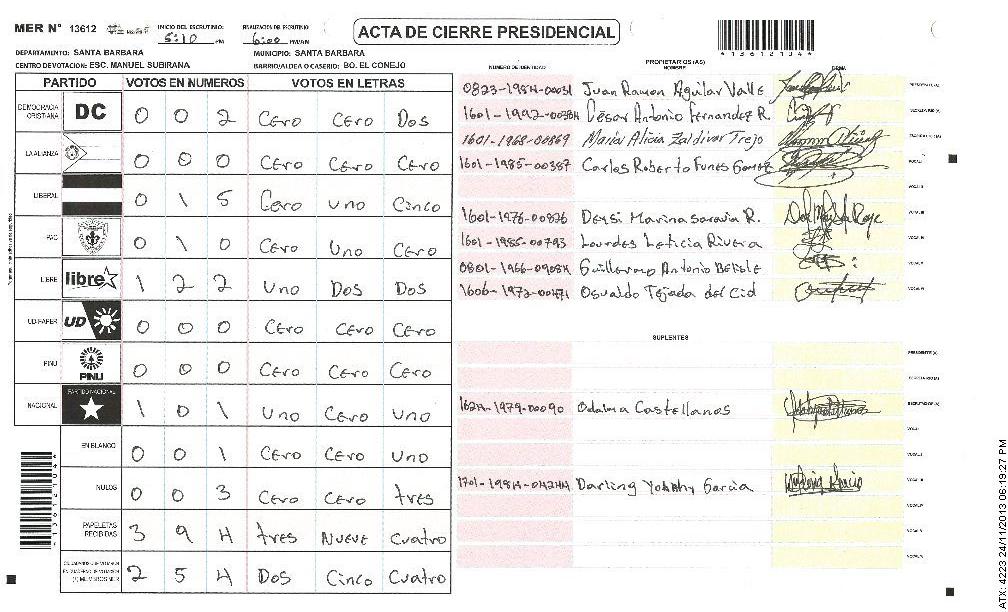 MER N° 13612 INICIO DEL ESCRUTINIO: 5:10 PM FINALIZACION DE ESCRUTINIO: 6:00 PM/AM
ACTA DE CIERRE PRESIDENCIAL
4136121344
DEPARTAMENTO: SANTA BARBARA MUNICIPIO: SANTA BARBARA
CENTRO DE VOTACION: ESC. MANUEL SUBIRANA BARRIO/ALDEA O CASERIO: BO. EL CONEJO
PARTIDO VOTOS EN NUMEROS VOTOS EN LETRAS
DEMOCRACIA CRISTIANA DC 0 0 2 Cero Cero Dos
LA ALIANZA 0 0 0 Cero Cero Cero
LIBERAL 0 1 5 Cero Uno Cinco
PAC 0 1 0 Cero Uno Cero
LIBRE libre 1 2 2 Uno Dos Dos
UD-FAPER UD 0 0 0 Cero Cero Cero
PINU PINU 0 0 0 Cero Cero Cero
NACIONAL PARTIDO NACIONAL 1 0 1 Uno Cero Uno
EN BLANCO 0 0 1 Cero Cero Uno
NULOS 0 0 3 Cero Cero tres
PAPELETAS RECIBIDAS 3 9 4 tres Nueve Cuatro
2 5 4 Dos Cinco Cuatro
NUMERO DE IDENTIDAD PROPIETARIOS (AS) NOMBRE FIRMA
0823-1984-00031 Juan Ramon Aguilar Valle PRESIDENTE (A)
César Antonio Fernandez R. SECRETARIO (A)
1601-1968-00869 Maria Alicia Zaldivar Trejo ESCRUTADOR (A)
1601-1985-00367 Carlos Roberto Funes Gomez VOCAL I
VOCAL II
1601-1976-00826 Deysi Marina Saravia R. VOCAL III
1601-1985-00793 Lourdes Leticia Rivera VOCAL IV
Guillermo Antonio Belisle VOCAL V
1606-1972-00471 Osvaldo Tejada del Cid VOCAL VI
SUPLENTES
PRESIDENTE (A)
SECRETARIO (A)
1624-1979-00090 Odalma Castellanos ESCRUTADOR (A)
VOCAL I
VOCAL II
Darling Garcia VOCAL III
VOCAL IV
VOCAL V
VOCAL VI
ATX: 4223 24/11/2013 06:19:27 PM